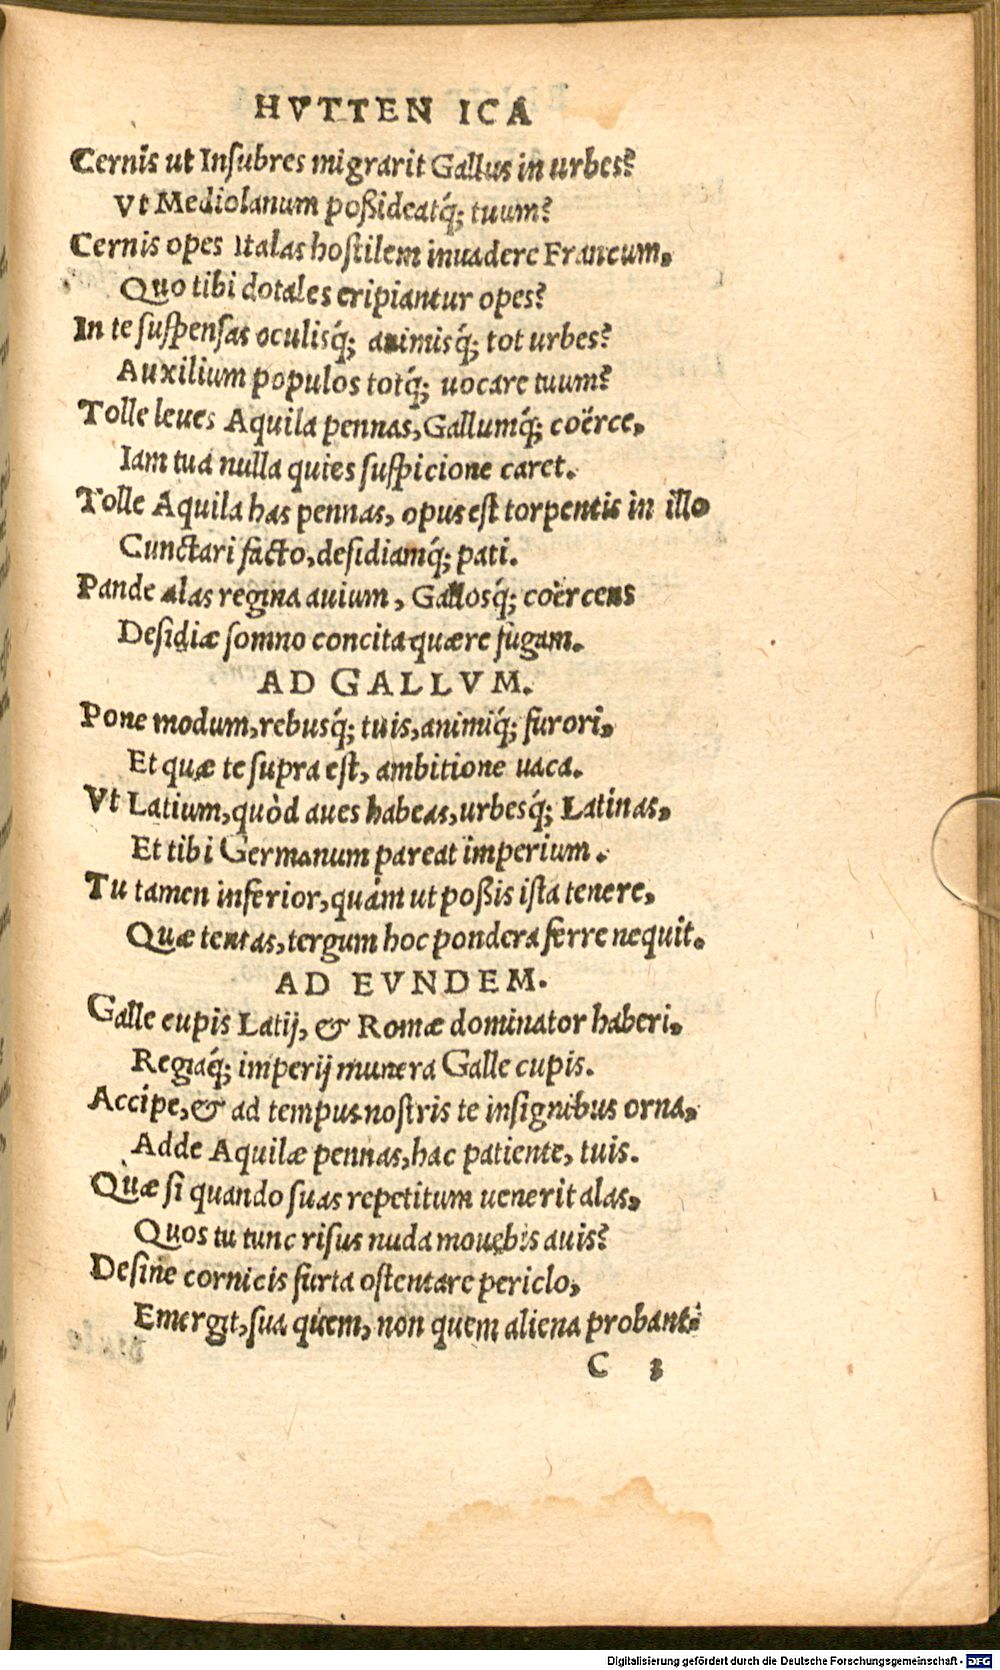 HVTTEN ICA
Cernis ut Insubres migrarit Gallus in urbes?
Vt Mediolanum poßideatq́; tuum?
Cernis opes Italas hostilem inuadere Francum,
Quo tibi dotales eripiantur opes?
In te suspensas oculisq́; animisq́; tot urbes?
Auxilium populos totq́; uocare tuum?
Tolle leues Aquila pennas, Gallumq́; coërce,
Iam tua nulla quies suspicione caret.
Tolle Aquila has pennas, opus est torpentis in illo
Cunctari facto, desidiamq́; pati.
Pande alas regina auium, Gallosq́; coërcens
Desidiæ somno concita quære fugam.
AD GALLVM.
Pone modum, rebusq́; tuis, animiq́; furori,
Et quæ te supra est, ambitione uaca.
Vt Latium, quòd aues habeas, urbesq́; Latinas,
Et tibi Germanum pareat imperium.
Tu tamen inferior, quàm ut poßis ista tenere,
Quæ tentas, tergum hoc pondera ferre nequit.
AD EVNDEM.
Galle cupis Latij, & Romæ dominator haberi,
Regiaq́; imperij munera Galle cupis.
Accipe, & ad tempus nostris te insignibus orna,
Adde Aquilæ pennas, hac patiente, tuis.
Quæ si quando suas repetitum uenerit alas,
Quos tu tunc risus nuda mouebis auis?
Desine cornicis furta ostentare periclo,
Emergit, sua quem, non quem aliena probant.
C 3
Digitalisierung gefördert durch die Deutsche Forschungsgemeinschaft - DFG